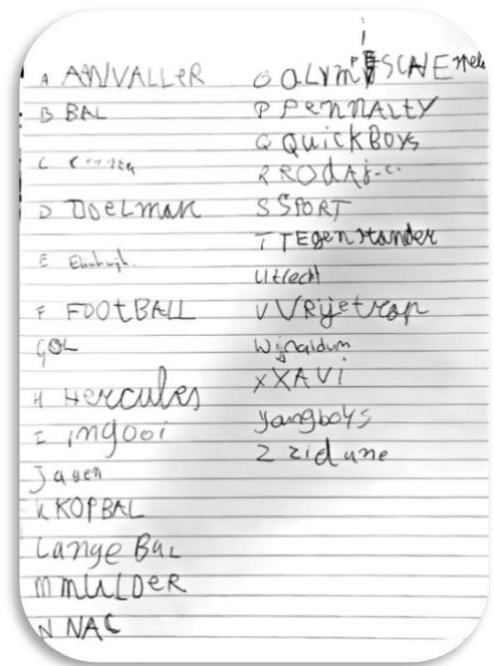 A AANVALLER
B BAL
C
D DOELMAN
E Edinburgh
F FOOTBALL
GOL
H Hercules
I ingooi
Jagen
K KOPBAL
Lange BaL
M mULDER
N NAC
O OLYMPISCHE
P PENNALTY
Q QuickBoys
R RODAJ.C.
S SPORT
T TEgenstander
Utrecht
V VRijetrap
Wijnaldum
X XAVI
Yangboys
Z zidane